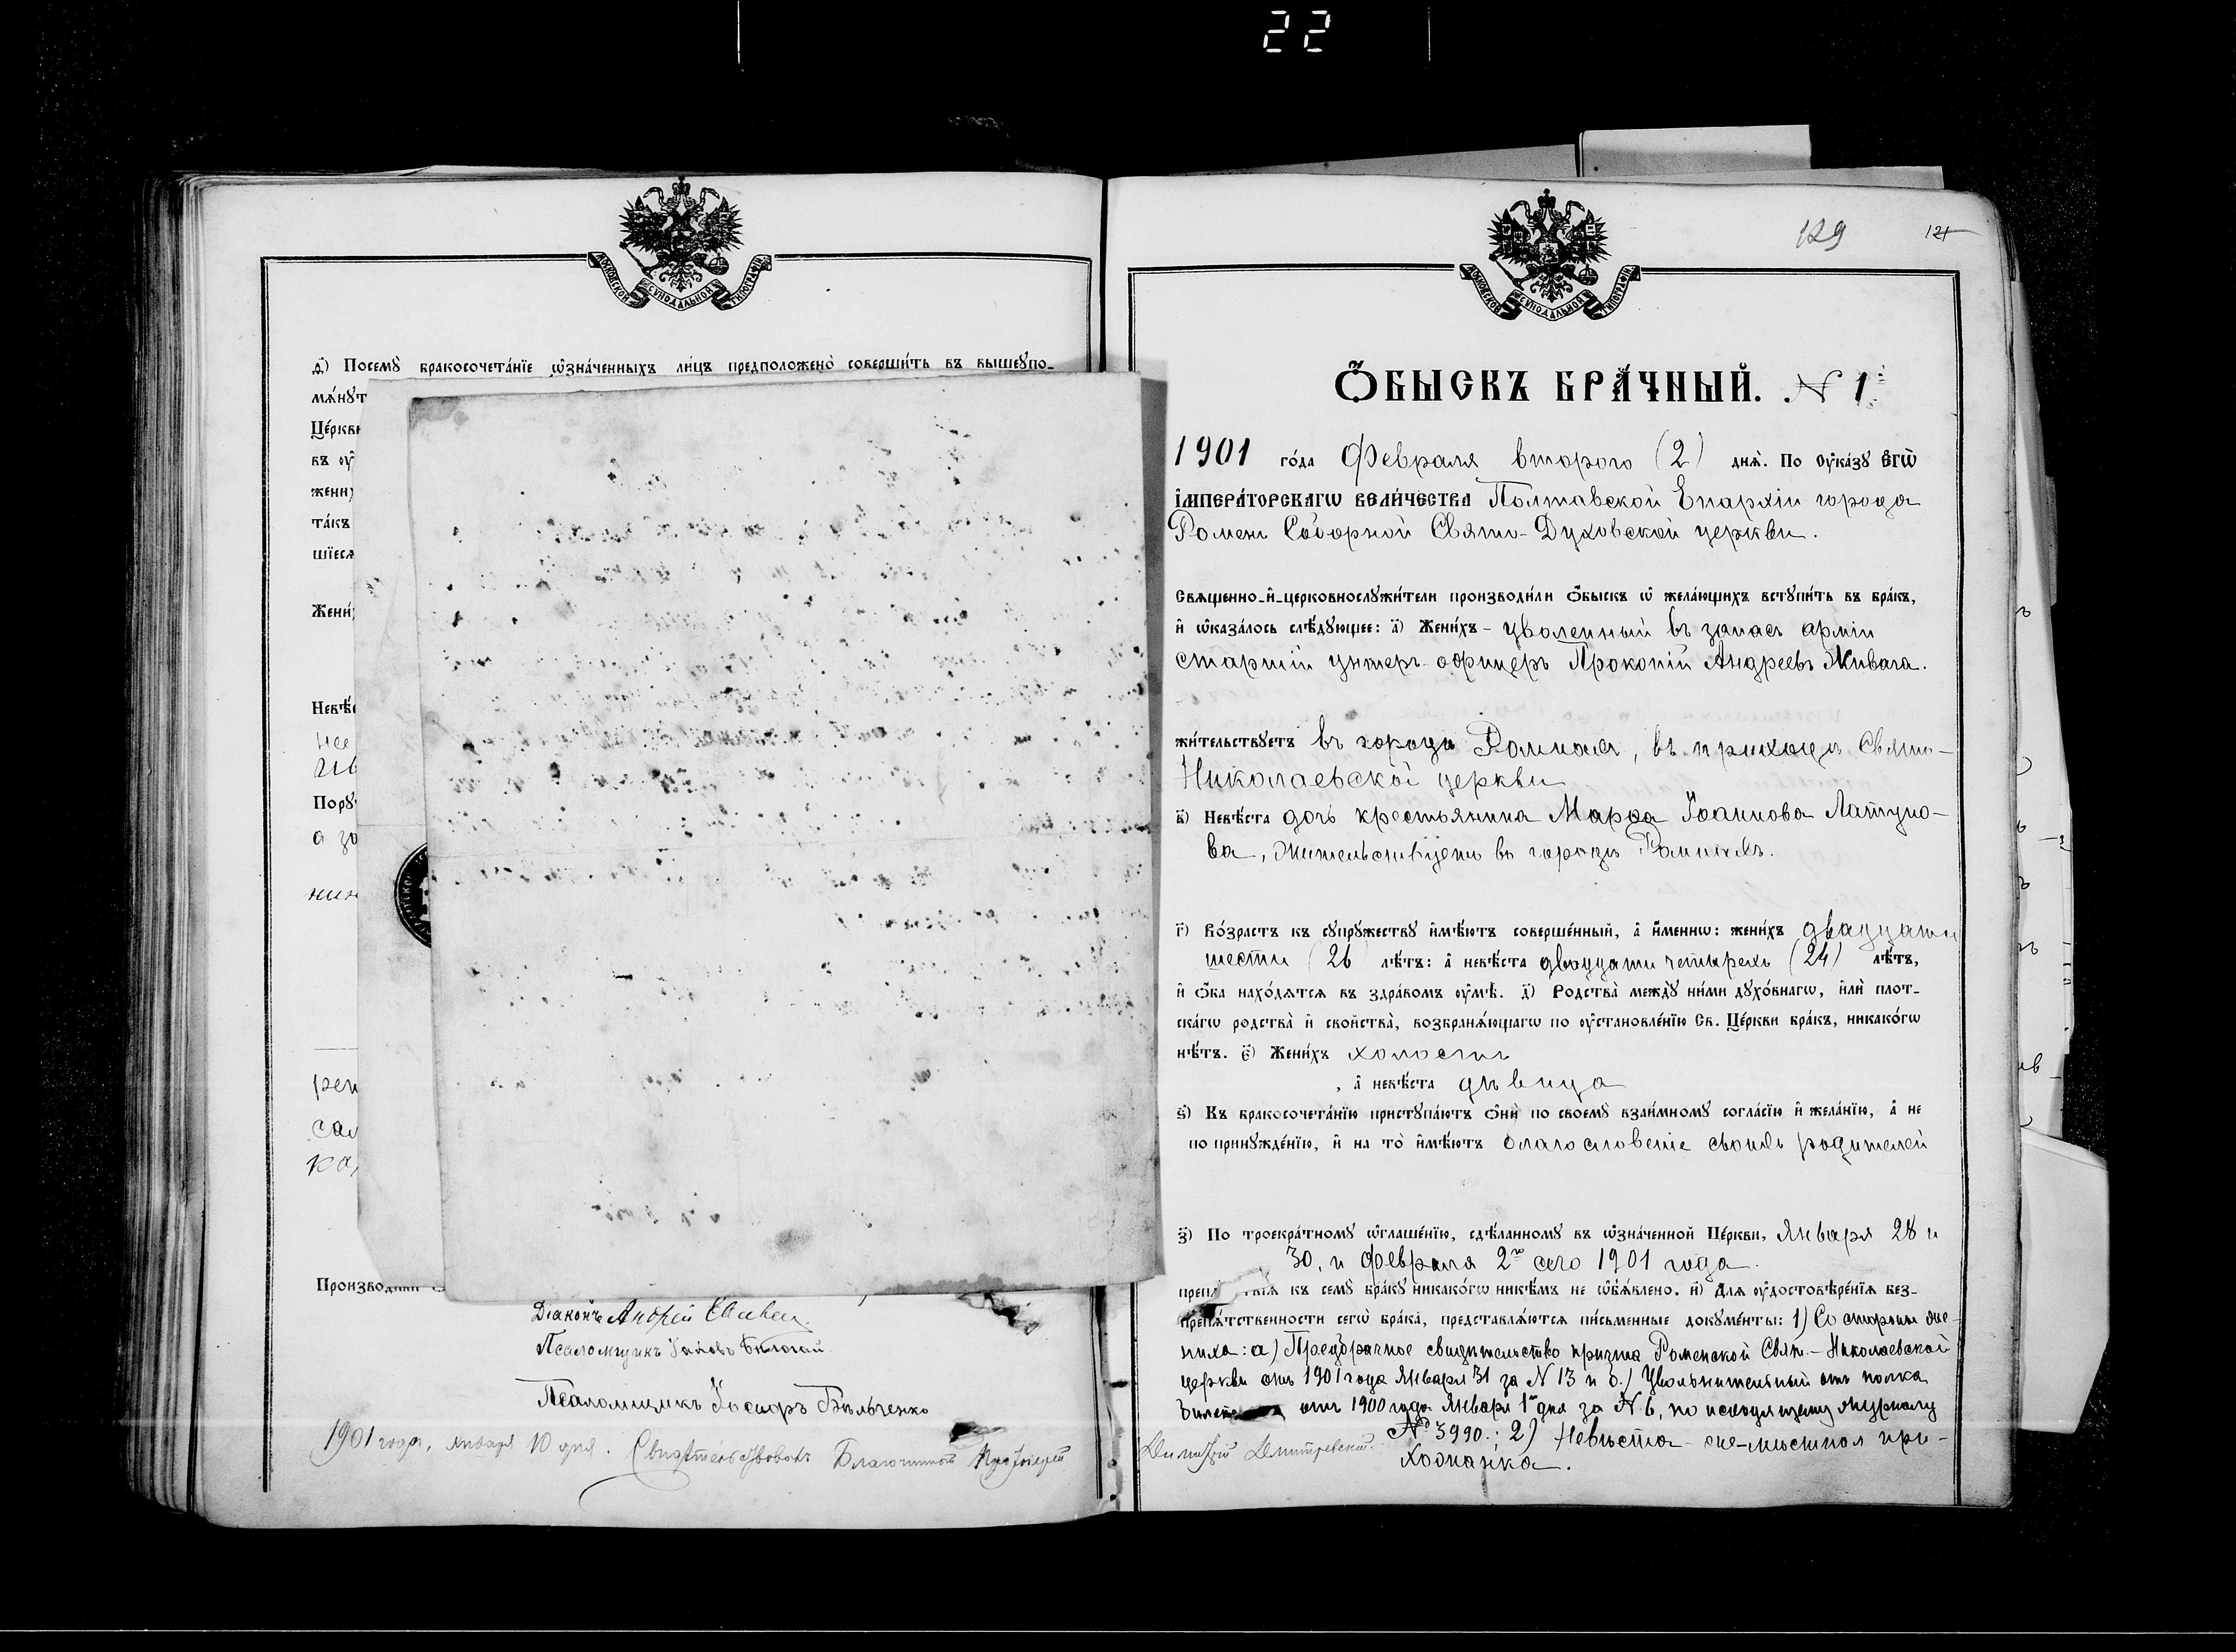 22
МОСКОВСКОЙ СѴНОДАЛЬНОЙ ТИПОГРАФІИ
д҃) Посемꙋ̀ бракосочета́нїе ѡ҆зна́ченныхъ ли́цъ предположено̀ соверши́ть въ вышеꙋпо-
мѧ́нꙋт
Це́ркви
въ оу҆
жени
та́къ
шїесѧ
Жени́
Невѣ́с
Порꙋ
а за
ниж
рен
сал
ка
Производи́ли
Діаконъ Андрей
Псаломщикъ
Псаломщикъ Іосифъ Бѣльченко
1901 года, января 10 дня. Свидѣтельствовалъ Благочинный Протоіерей
Димитрій Дмитревскій.
129 121
МОСКОВСКОЙ СѴНОДАЛЬНОЙ ТИПОГРАФІИ
Ѻ҆БЫСКЪ БРА́ЧНЫЙ. N 1.
1901 го́да Февраля второго (2) днѧ̀. По Оу҆ка́зꙋ Є҆ГѠ̀
І҆МПЕРА́ТОРСКАГѠ ВЕЛИ́ЧЕСТВА Полтавской Епархіи города
Ромен Соборной Свято-Духовской церкви.
Свѧщенно-и҆-церковнослꙋжи́тели производи́ли ѻ҆́быскъ ѡ҆ жела́ющихъ встꙋпи́ть въ бра́къ,
и҆ ѡ҆каза́лось слѣ́дꙋющее: а҃) Жени́хъ - уволенный въ запасъ арміи
старшій унтеръ-офицеръ Прокопій Андреевъ Живага.
жи́тельствꙋетъ въ городѣ Ромнахъ, въ приходѣ Свято-
Николаевской церкви
в҃) Невѣ́ста дочь крестьянина Марфа Іоаннова Латуно-
ва, жительствуетъ въ городѣ Ромнахъ.
г҃) Во́зрастъ къ сꙋпрꙋ́жествꙋ и҆мѣ́ютъ соверше́нный, а҆ и҆́меннѡ: жени́хъ двадцати
шести (26) лѣ́тъ: а҆ невѣ́ста двадцати четырехъ (24) лѣ́тъ,
и҆ ѻ҆́ба нахо́дѧтсѧ въ здра́вомъ оу҆мѣ̀. д҃) Родства̀ междꙋ̀ ни́ми дꙋхо́внагѡ, и҆лѝ плот-
ска́гѡ родства̀ и҆ сво́йства̀, возбранѧ́ющагѡ по оу҆становле́нїю Св. Це́ркви бра́къ, никако́гѡ
нѣ́тъ. є҃) Жени́хъ холостъ
, а҆ невѣ́ста дѣвица
ѕ҃) Къ бракосочета́нїю пристꙋпа́ютъ ѻ҆нѝ по своемꙋ̀ взаи́мномꙋ согла́сїю и҆ жела́нїю, а҆ не
по принꙋжде́нїю, и҆ на то̀ и҆мѣ́ютъ благословеніе своихъ родителей
з҃) По троекра́тномꙋ ѡ҆глаше́нїю, сдѣ́ланномꙋ въ ѡ҆зна́ченной Це́ркви, Января 28 и
30, и февраля 2го сего 1901 года.
къ семꙋ̀ бра́кꙋ никако́гѡ никѣ́мъ не ѡ҆б̾ѧ́влено. и҃) Для оу҆достовѣре́нїѧ без-
препѧ́тственности сегѡ̀ бра́ка, представлѧ́ютсѧ пи́сьменные докꙋме́нты: 1) Со стороны же-
ниха: а) Предбрачное свидѣтельство причта Роменской Свят.-Николаевской
церкви отъ 1901 года Января 31 за N 13 и б.) Увольнительный отъ полка
билетъ отъ 1900 года Января 1го дня за N 6, по исходящему журналу
№ 3990.; 2) Невѣста - мѣстная при-
хожанка.